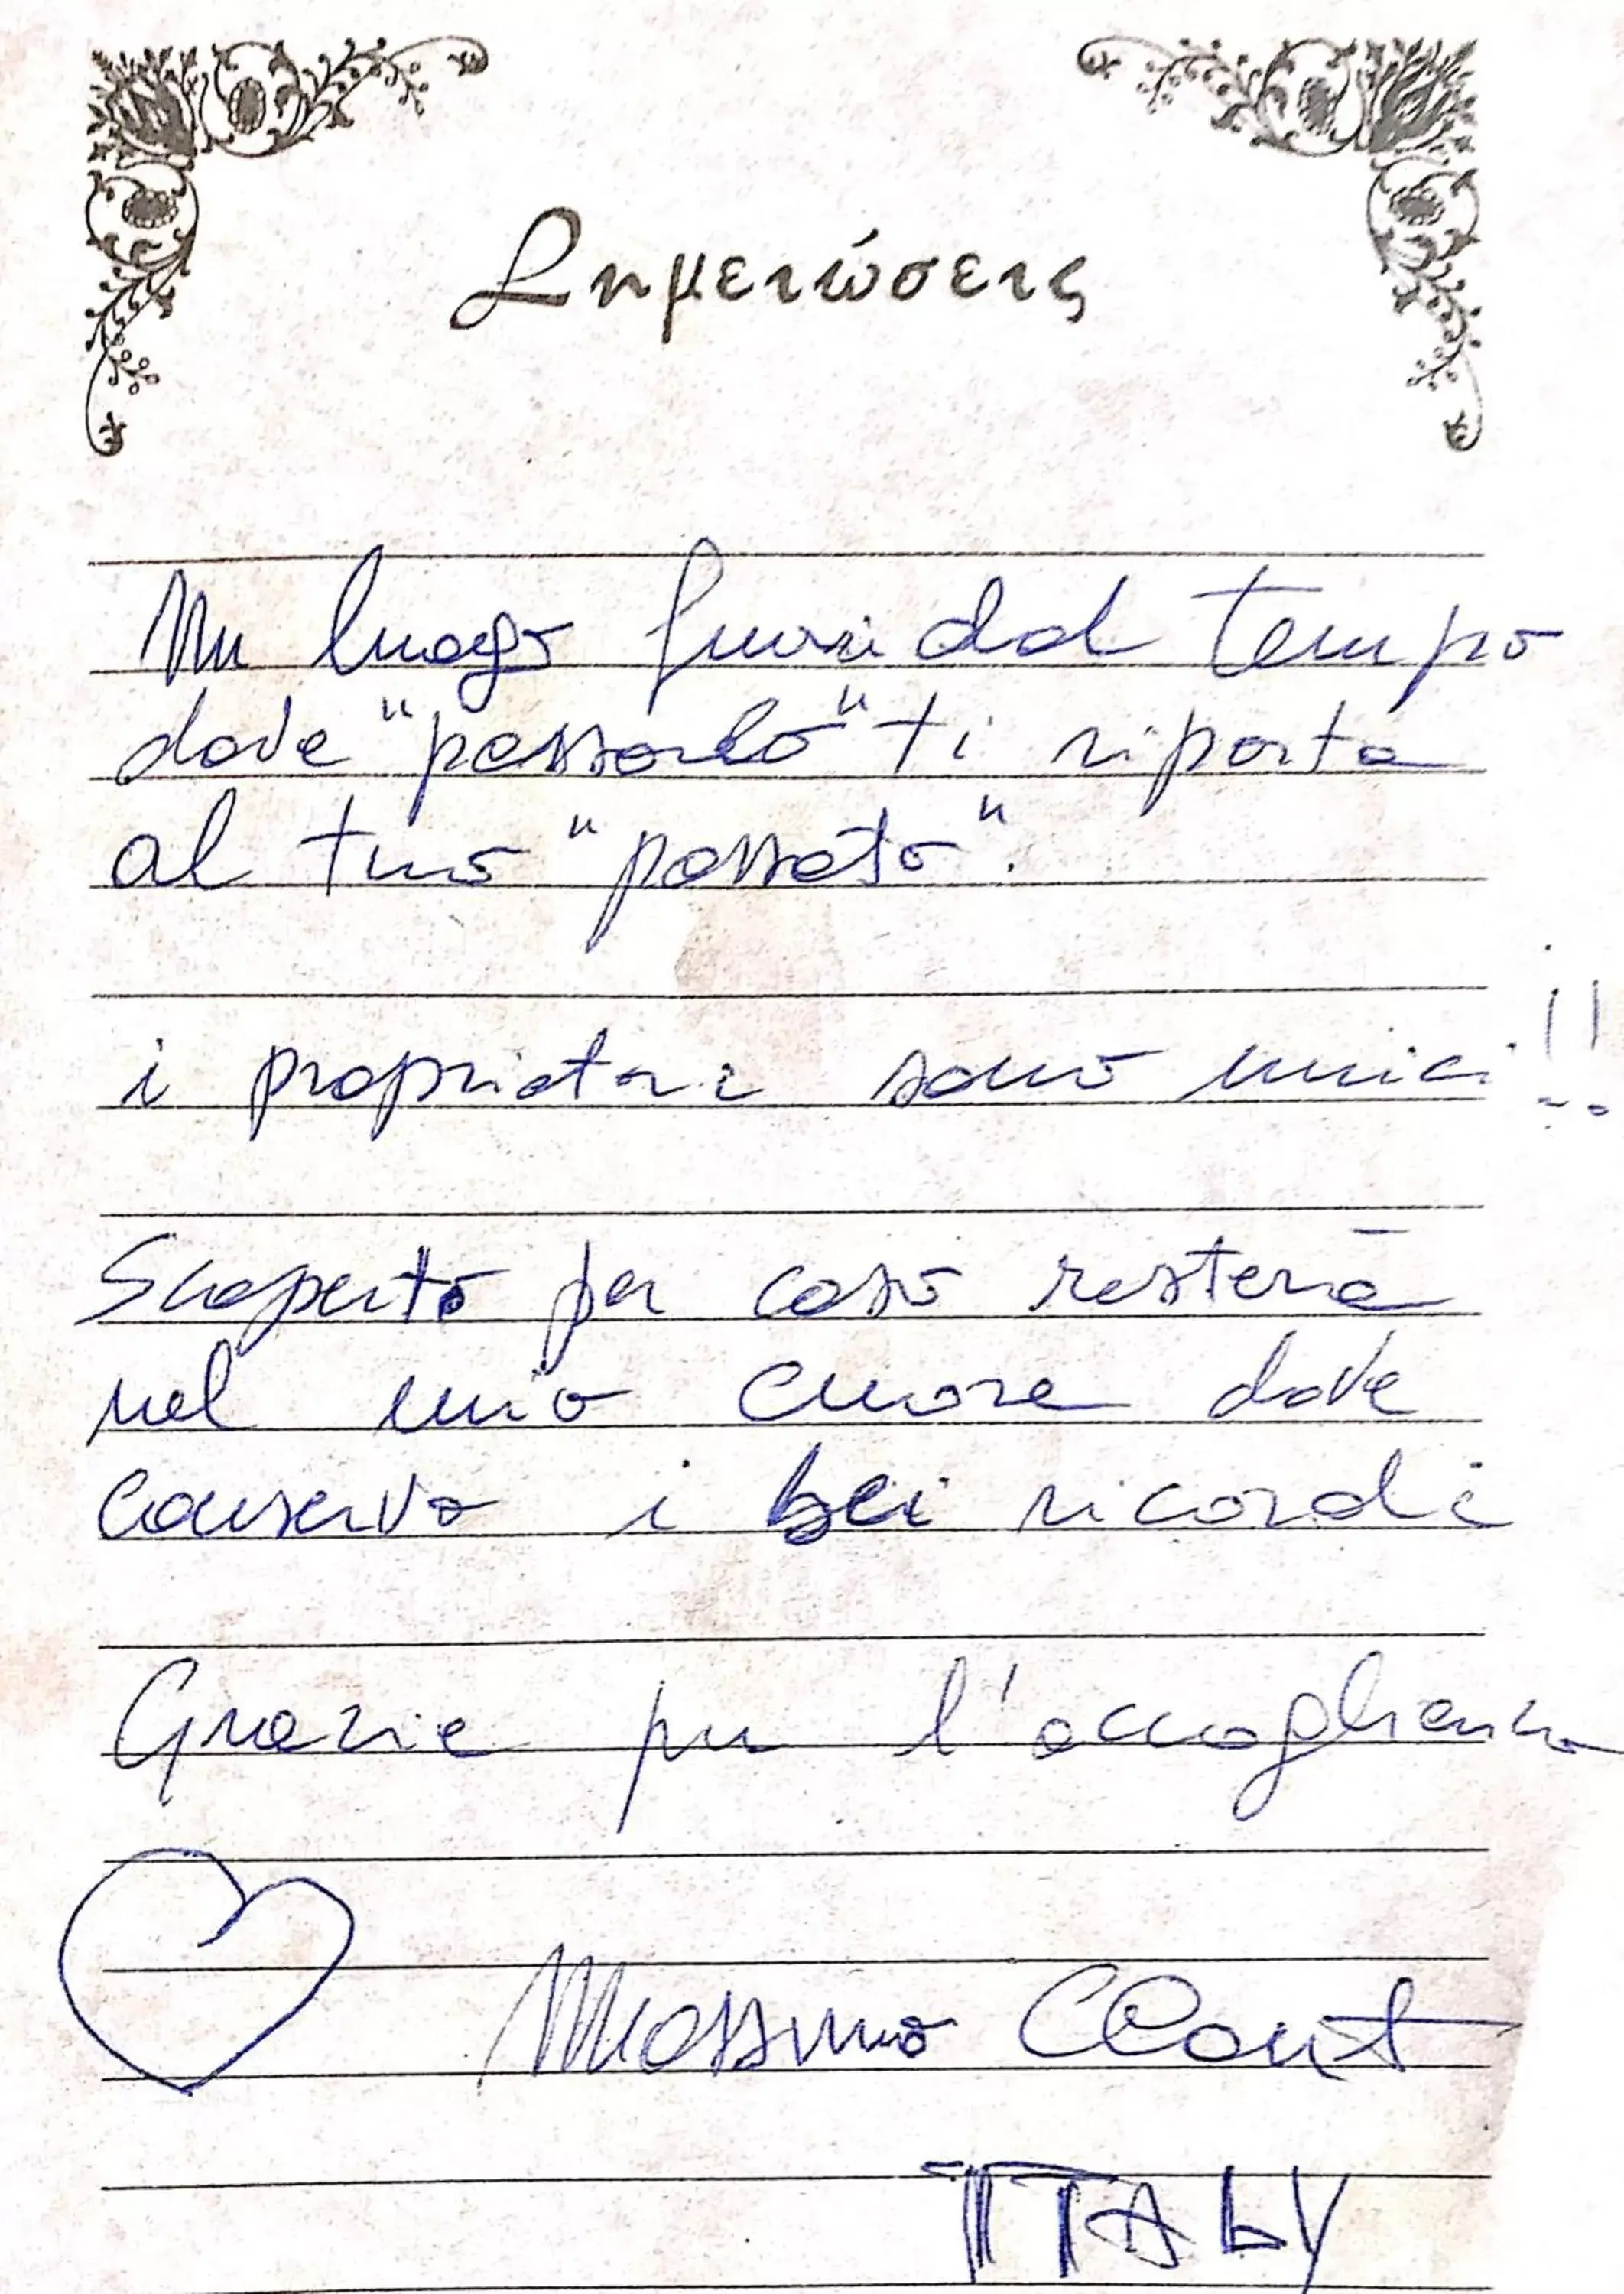 Σημειώσεις
Un luogo fuori dal tempo
dove "passarlo" ti riporta
al tuo "passato".
i proprietari sono unici!!
Scoperto per caso resterà
nel mio cuore dove
conservo i bei ricordi
Grazie per l'accoglienza
Massimo
ITALY